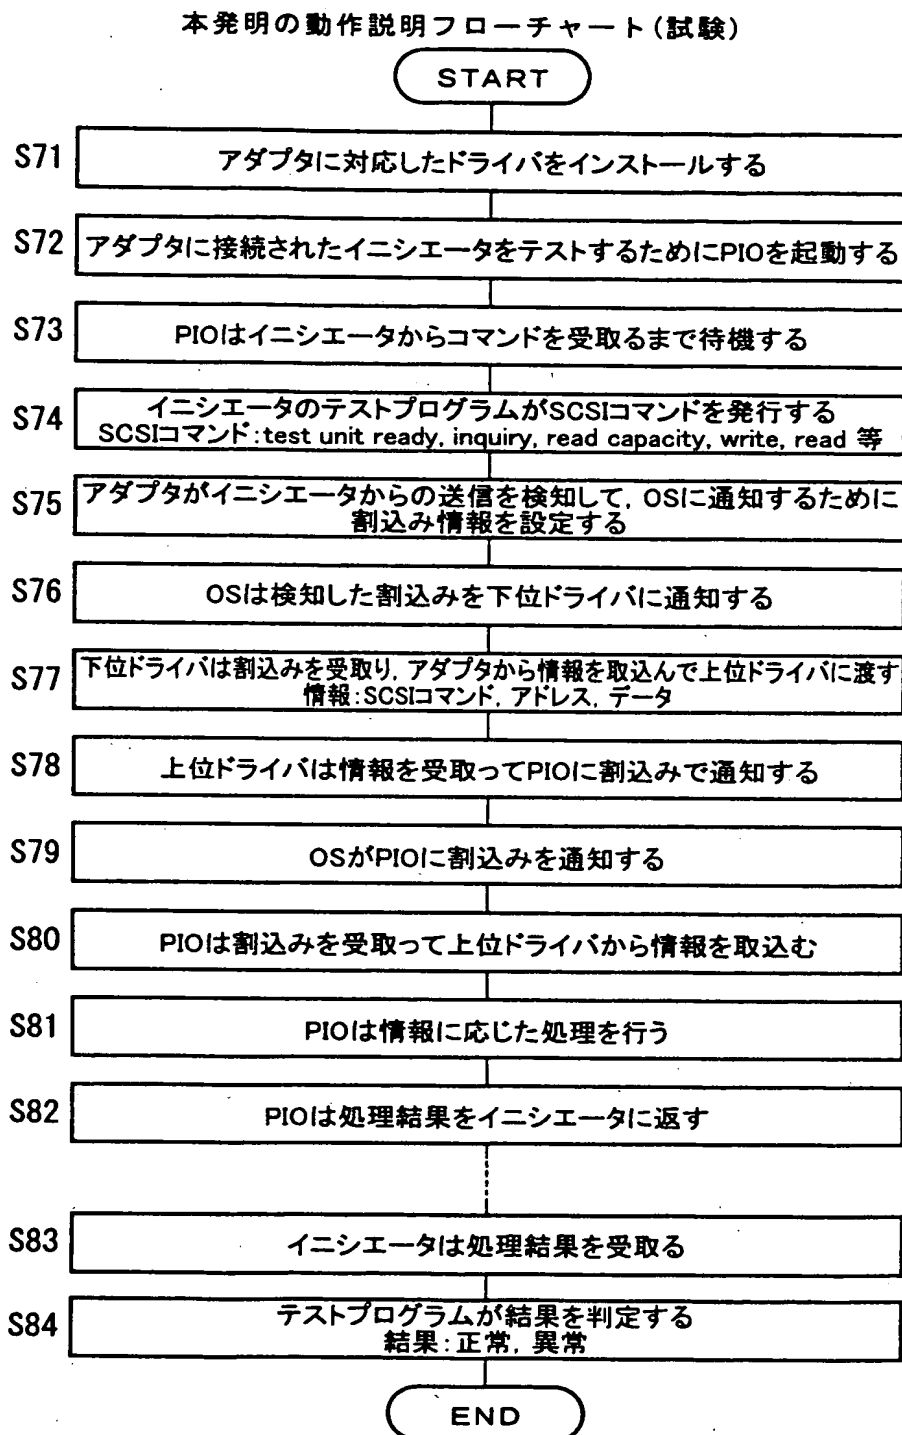 本発明の動作説明フローチャート(試験)
START
S71
アダプタに対応したドライバをインストールする
S72
アダプタに接続されたイニシエータをテストするためにPIOを起動する
S73
PIOはイニシエータからコマンドを受取るまで待機する
S74
イニシエータのテストプログラムがSCSIコマンドを発行する
SCSIコマンド:test unit ready, inquiry, read capacity, write, read 等
S75
アダプタがイニシエータからの送信を検知して, OSに通知するために
割込み情報を設定する
S76
OSは検知した割込みを下位ドライバに通知する
S77
下位ドライバは割込みを受取り, アダプタから情報を取込んで上位ドライバに渡す
情報:SCSIコマンド, アドレス, データ
S78
上位ドライバは情報を受取ってPIOに割込みで通知する
S79
OSがPIOに割込みを通知する
S80
PIOは割込みを受取って上位ドライバから情報を取込む
S81
PIOは情報に応じた処理を行う
S82
PIOは処理結果をイニシエータに返す
S83
イニシエータは処理結果を受取る
S84
テストプログラムが結果を判定する
結果:正常, 異常
END